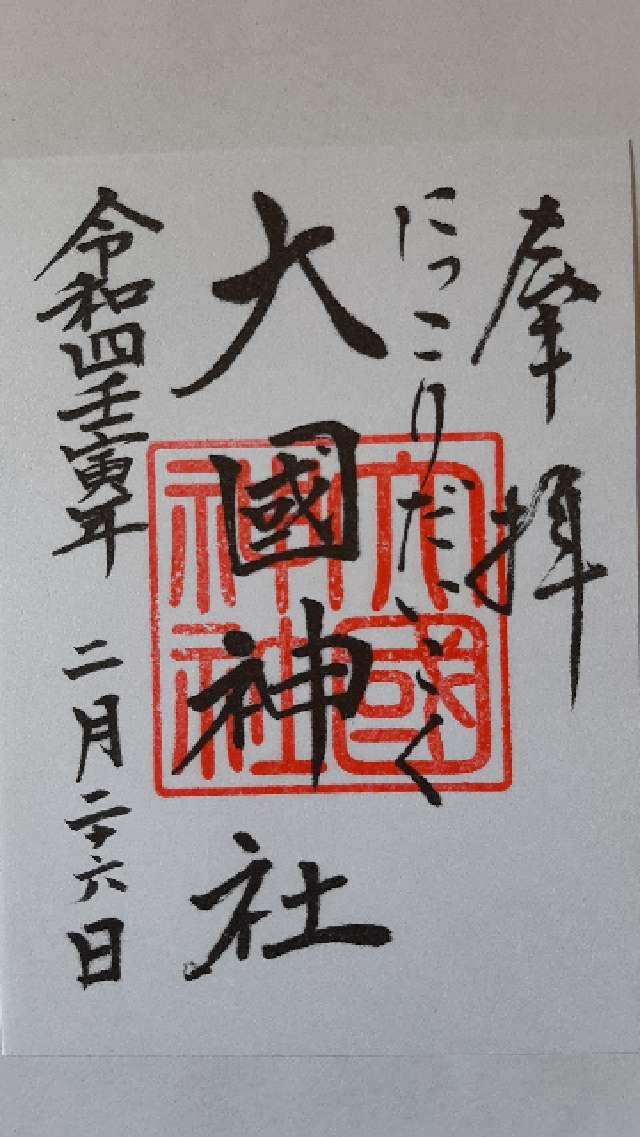 奉拝
にっこりだいこく
大國神社
令和四壬寅年 二月二十六日
大國
神社